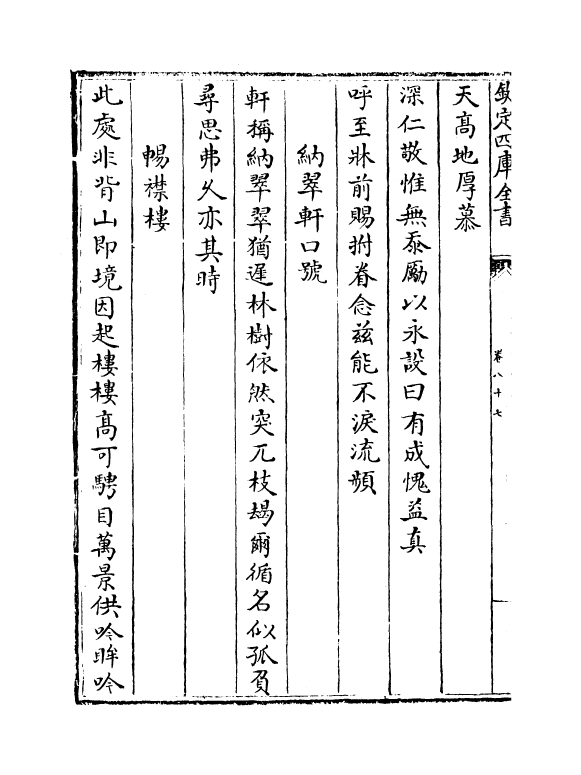 欽定四庫全書
卷八十七
天髙地厚慕
深仁敬惟無忝勵以永設曰有成愧益真
呼至牀前賜拊眷念兹能不淚流頻
納翠軒口號
軒稱納翠翠猶遲林樹依然突兀枝朅爾循名似孤負
尋思弗久亦其時
暢襟樓
此處非背山即境因起樓樓髙可騁目萬景供吟眸吟